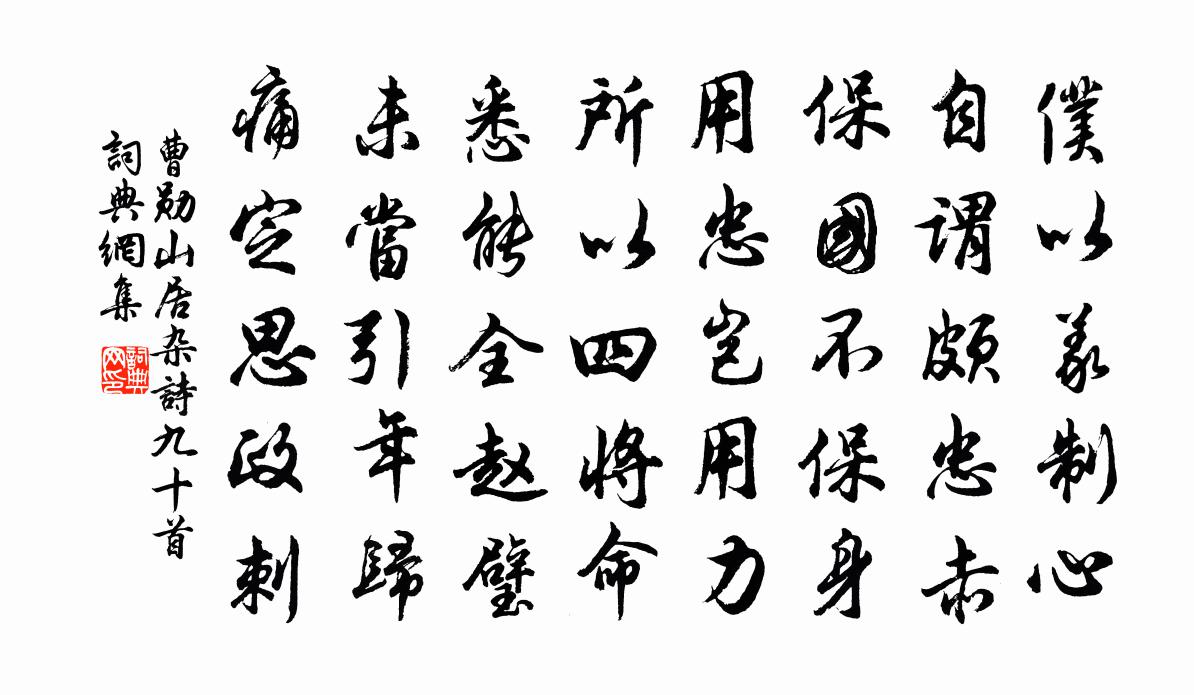 僕以義制心
自謂頗忠赤
保國不保身
用忠豈用力
所以四將命
悉能全赵璧
未當引年歸
痛定思政刺
曹勛山居杂詩九十首
詞典網集
詞典
网印